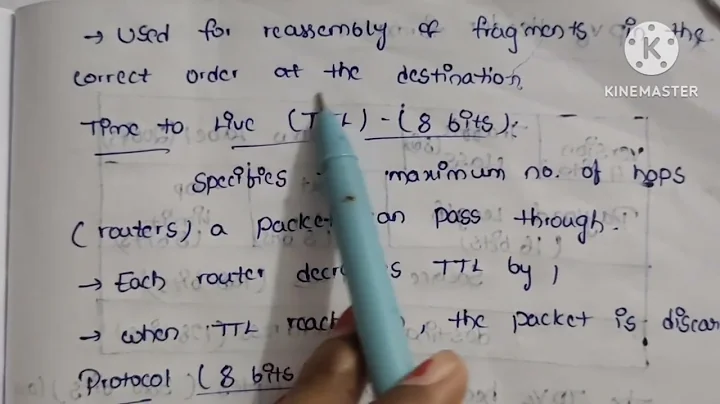 → Used for reassembly of fragments in the
correct order at the destination.
Time to Live (TTL) - (8 bits):
Specifies maximum no. of hops
(routers) a packet an pass through.
→ Each router decr s TTL by 1
→ when TTL reach , the packet is discar
Protocol (8 bits
KINEMASTER